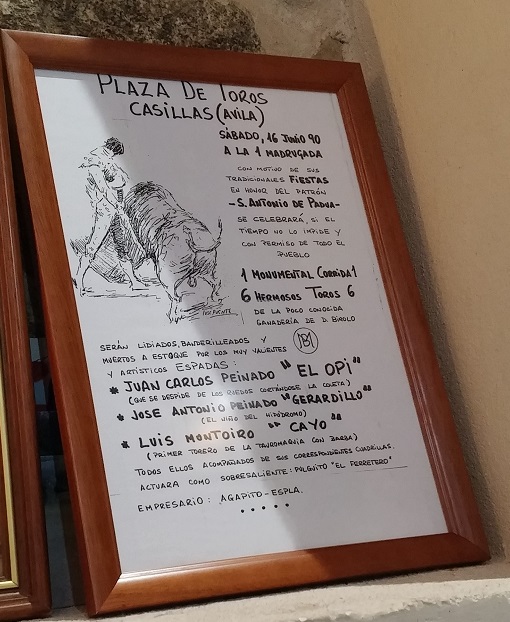 PLAZA DE TOROS
CASILLAS (AVILA)
SÀBADO, 16 JUNIO 90
A LA 1 MADRUGADA
CON MOTIVO DE SUS
TRADICIONALES FIESTAS
EN HONOR DEL PATRÓN
-S. ANTONIO DE PADUA-
SE CELEBRARÁ, SI EL
TIEMPO NO LO IMPIDE Y
CON PERMISO DE TODO EL
PUEBLO
1 MONUMENTAL CORRIDA 1
6 HERMOSOS TOROS 6
DE LA POCO CONOCIDA
GANADERÍA DE D. BIROLO
SERÁN LIDIADOS, BANDERILLEADOS Y
MUERTOS A ESTOQUE POR LOS MUY VALIENTES
Y ARTÍSTICOS ESPADAS:
* JUAN CARLOS PEINADO "EL OPI"
(QUE SE DESPIDE DE LOS RUEDOS CORTÁNDOSE LA COLETA)
* JOSE ANTONIO PEINADO "GERARDILLO"
(EL NIÑO DEL HIPÓDROMO)
* LUIS MONTOIRO "CAYO"
(PRIMER TORERO DE LA TAUROMAQUIA CON BARBA)
TODOS ELLOS ACOMPAÑADOS DE SUS CORRESPONDIENTES CUADRILLAS.
ACTUARA COMO SOBRESALIENTE: PULGUITO "EL FERRETERO"
EMPRESARIO: AGAPITO-ESPLA.
.....